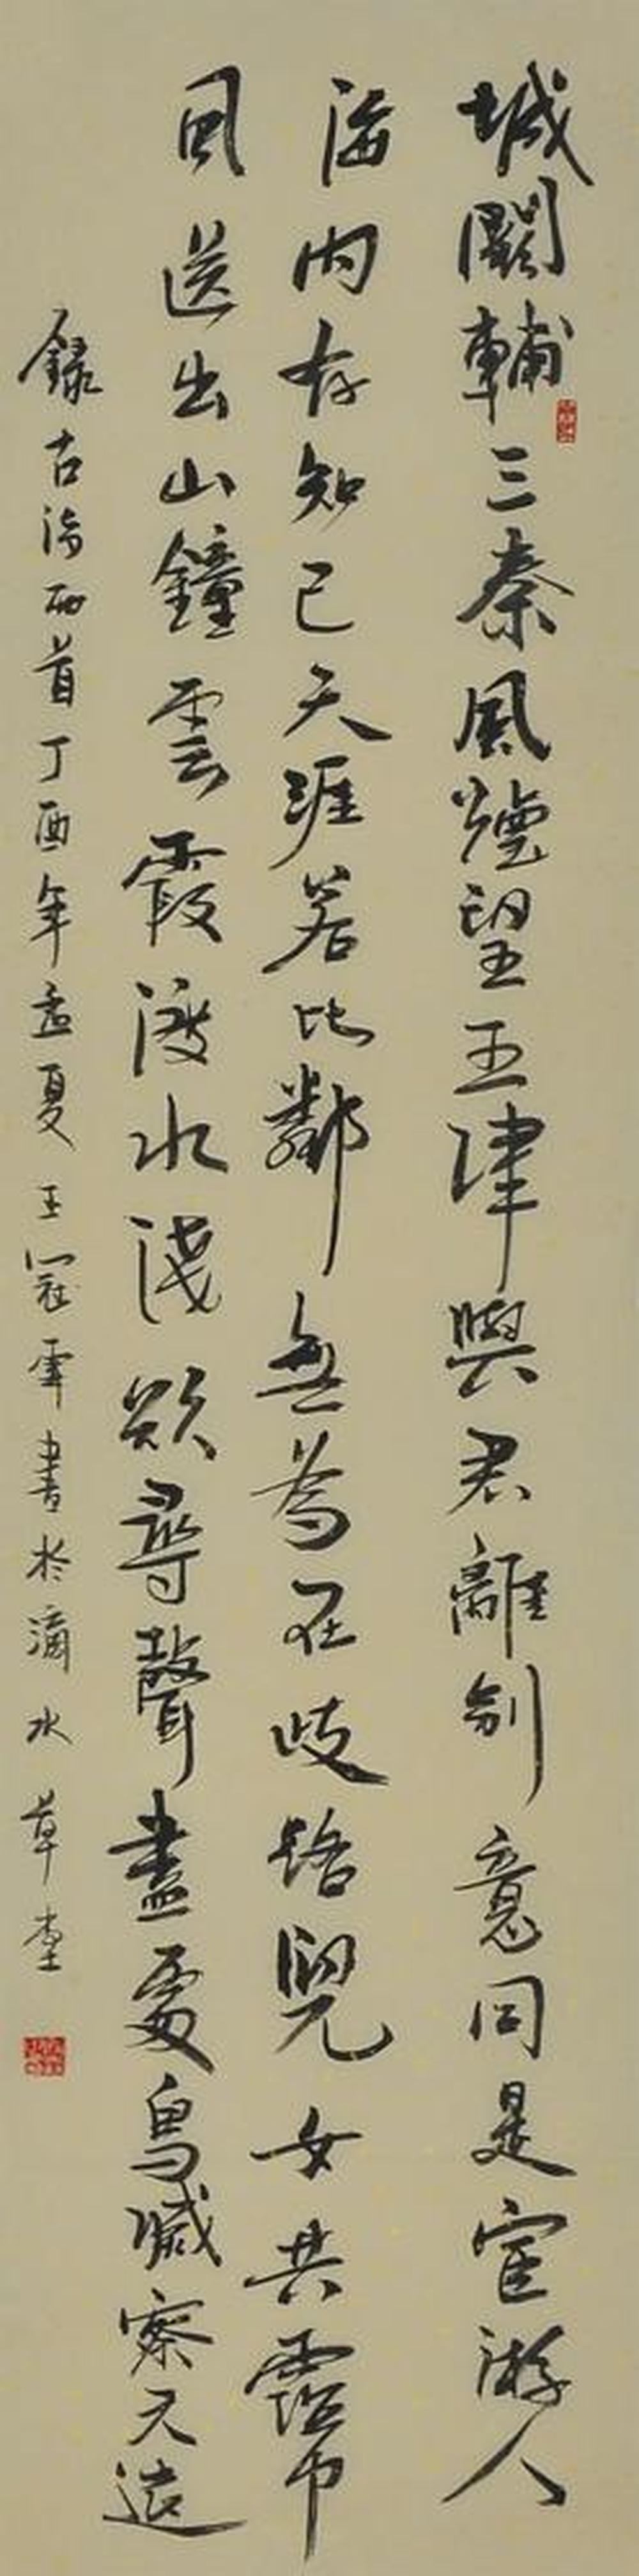 城闕輔三秦風煙望五津與君離別意同是宦游人
海內存知己天涯若比鄰無為在歧路兒女共霑巾
風送出山鐘雲霞度水淺欲尋聲盡處鳥滅寥天遠
錄古詩兩首丁酉年孟夏王冠軍書於滴水草堂